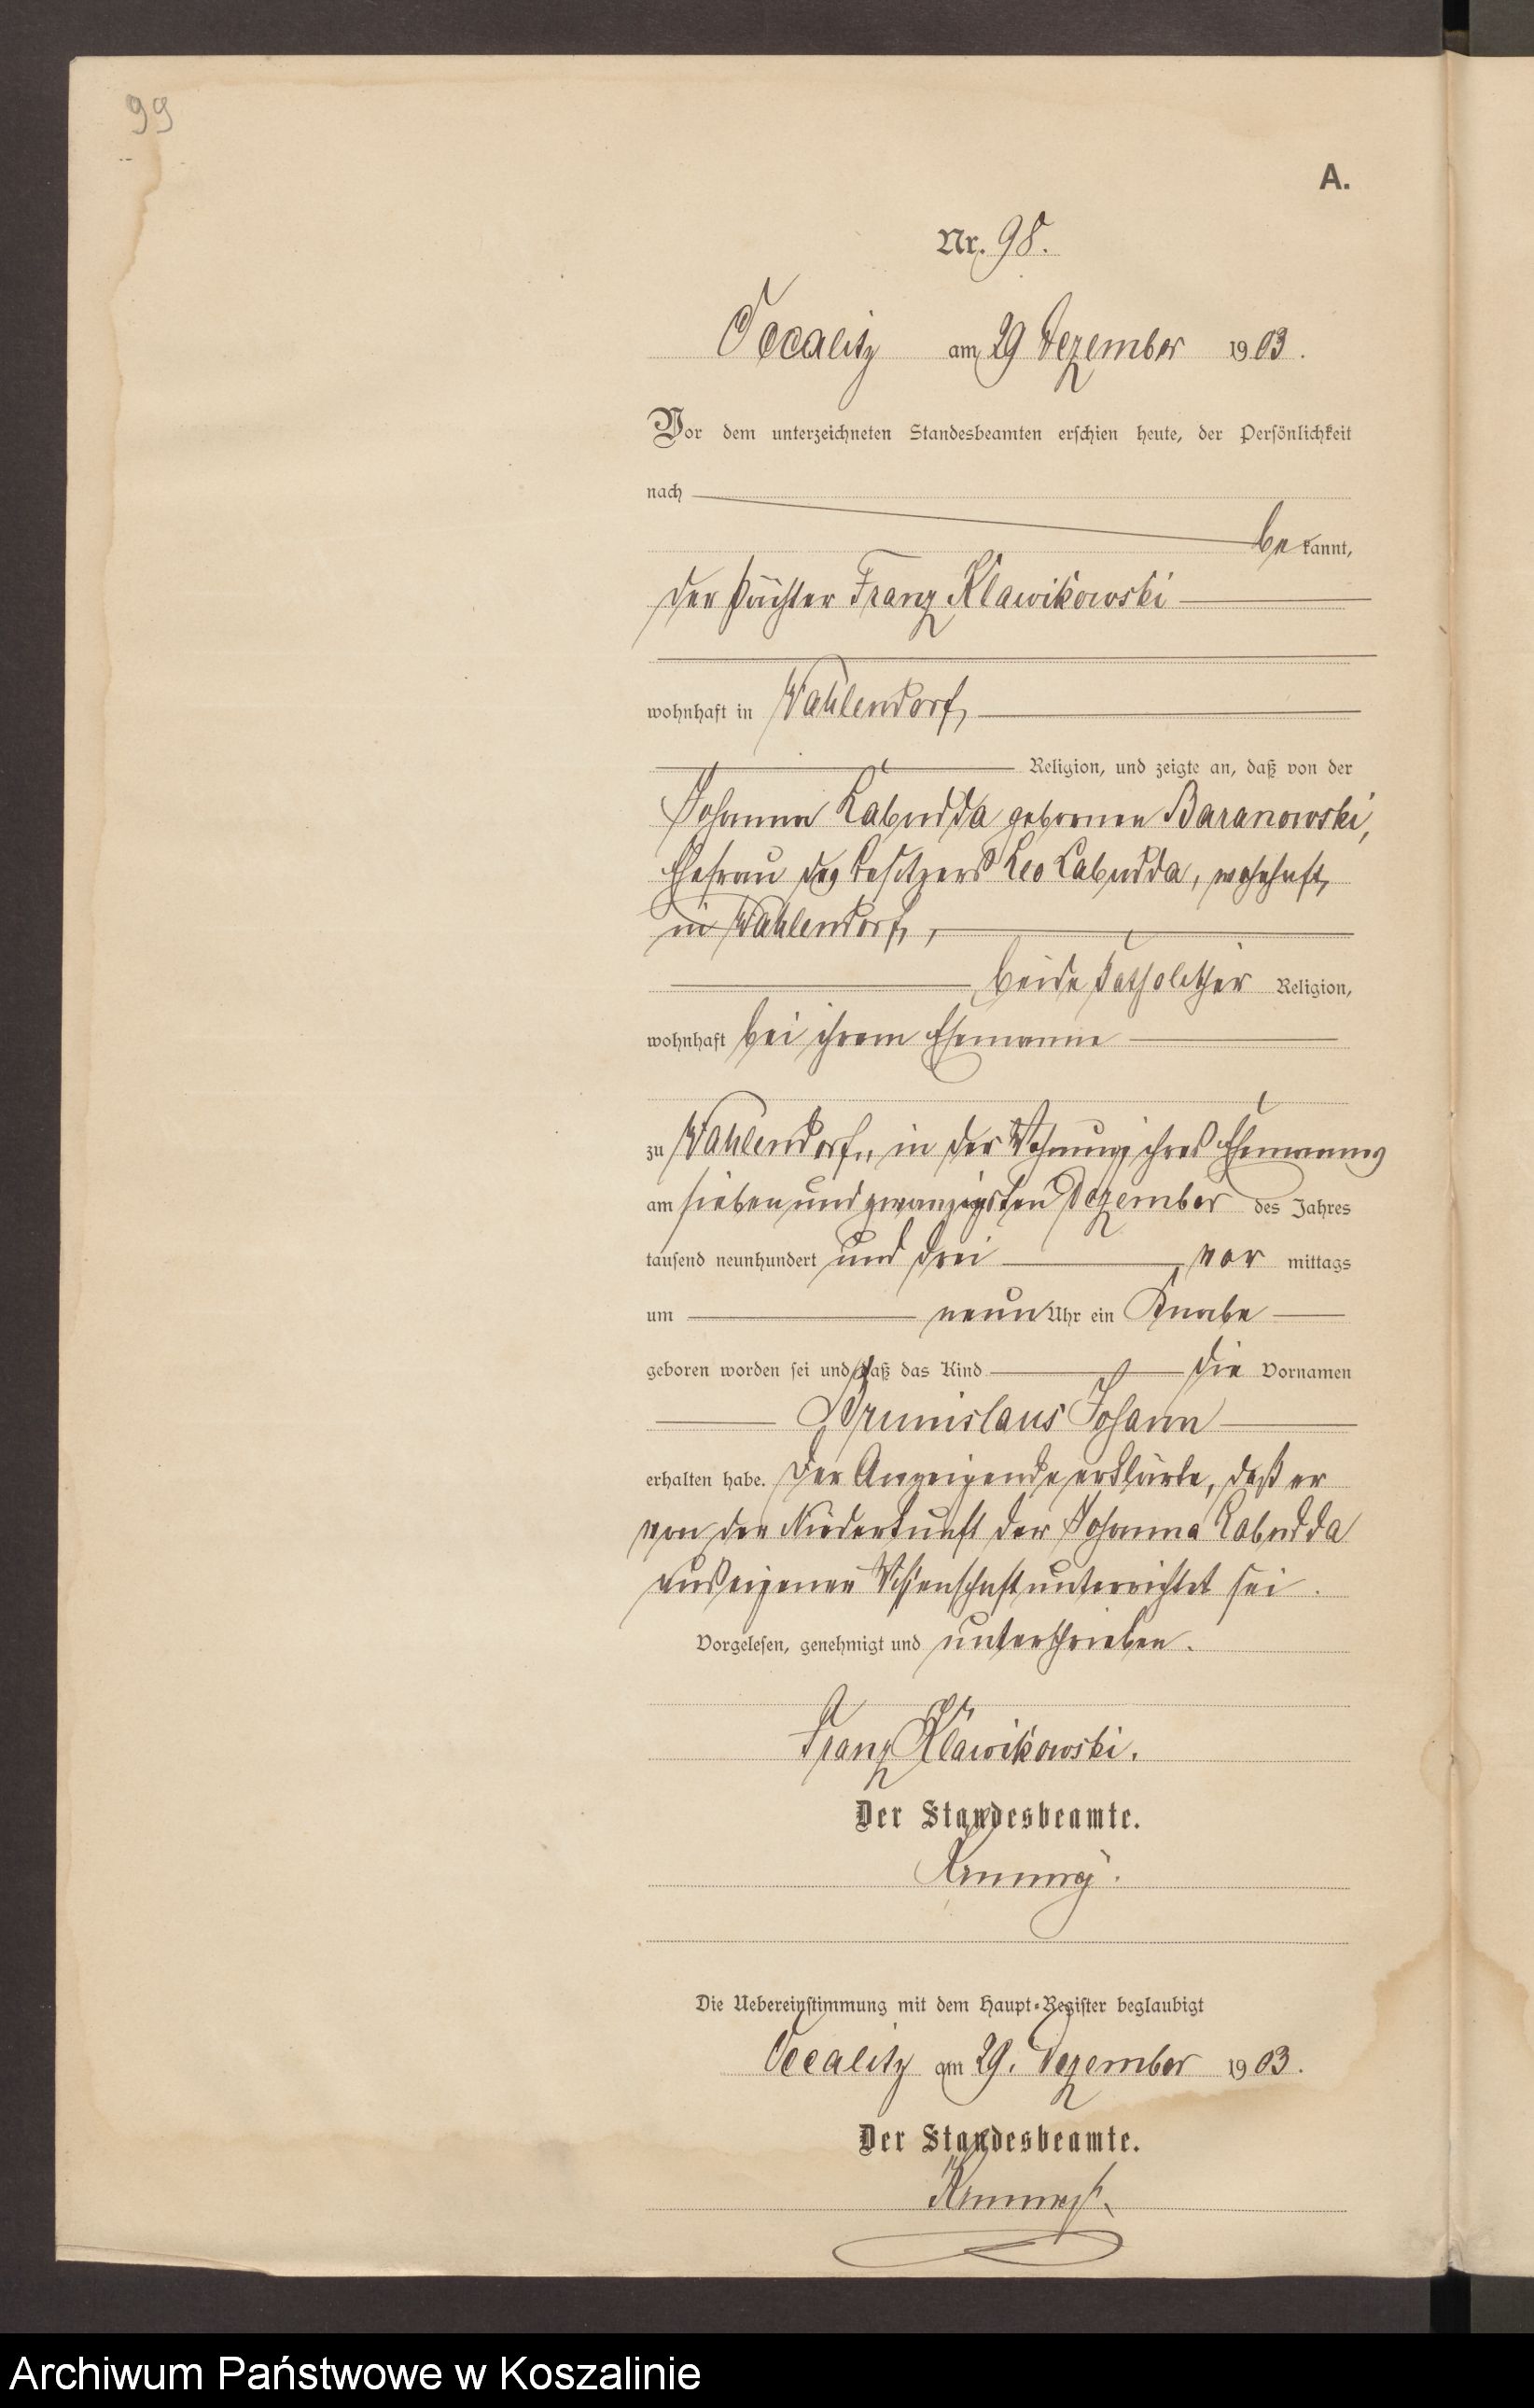 99
A.
Nr. 98.
Occalitz am 29 Dezember 1903.
Vor dem unterzeichneten Standesbeamten erschien heute, der Persönlichkeit
nach
be kannt,
der Pächter Franz Klawikowski
wohnhaft in Wahlendorf,
Religion, und zeigte an, daß von der
Johanna Labudda geborenen Baranowski,
Ehefrau des Besitzers Leo Labudda, wohnhaft
in Wahlendorf,
beide katholischer Religion,
wohnhaft bei ihrem Ehemanne
zu Wahlendorf, in der Wohnung ihres Ehemannes
am siebenundzwanzigsten Dezember des Jahres
tausend neunhundert und drei vor mittags
um neun Uhr ein Knabe
geboren worden sei und daß das Kind die Vornamen
Johann
erhalten habe. Der Anzeigende erklärte, daß er
von der Niederkunft der Johanna Labudda
aus eigener Wissenschaft unterrichtet sei.
Vorgelesen, genehmigt und unterschrieben.
Franz Klawikowski.
Der Standesbeamte.
Die Uebereinstimmung mit dem Haupt-Register beglaubigt
Occalitz am 29. Dezember 1903.
Der Standesbeamte.
Archiwum Państwowe w Koszalinie